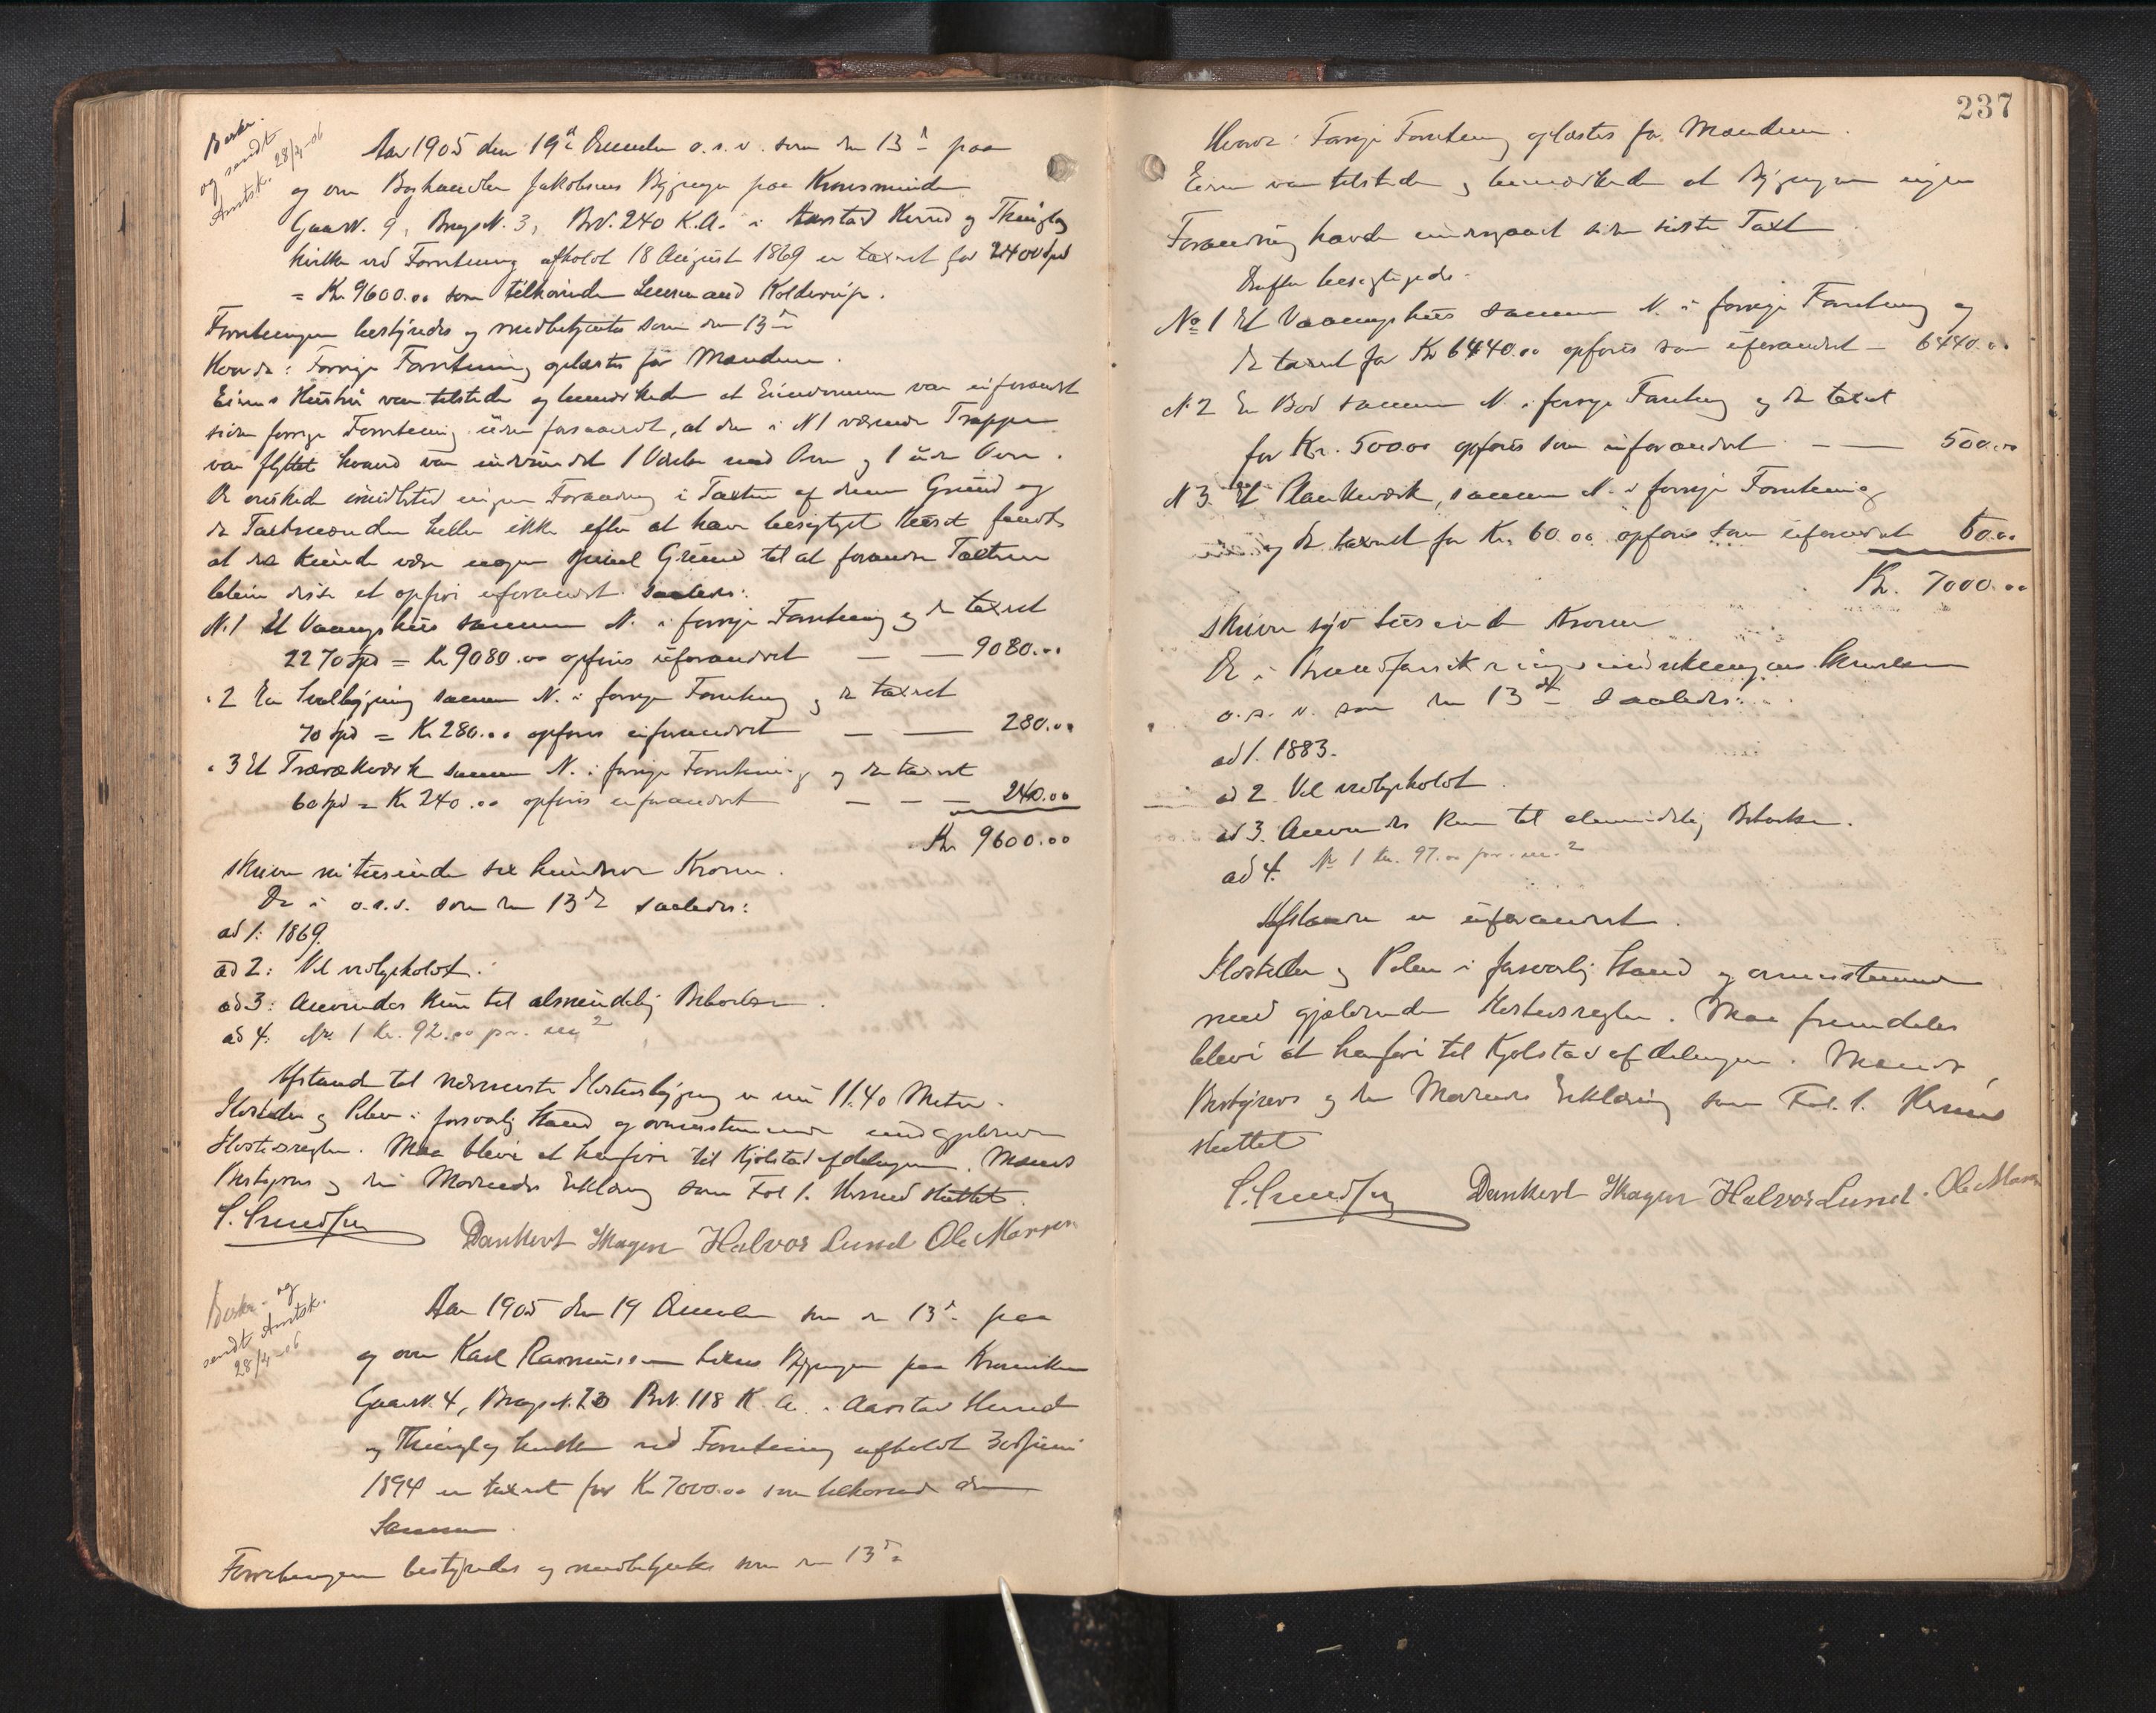 Beskr.
og sendt
Amtsk. 28/4-06
Aar 1905 den 19de December o.s.v. som den 13de paa
og over Boghandler Jakobsens Bygninger paa Kronsminde
GaardN. 9, BrugsN. 3, BrN. 240 K.A. i Aarstad Herred og Thinglag
hvilke ved Forretning afholdt 18 August 1869 er taxeret for 2400 Spd
= Kr. 9600.00 som tilhørende Lensmand Kolderup.
Forretningen bestyredes og medbetjentes som den 13de
Hvorda: Forrige Forretning oplæstes for Mændene.
Eierens Hustru var tilstede og bemærkede at Eiendommen var uforandret
siden forrige Forretning uden forsaavidt, at den i N 1 værende Trappe
var flyttet hvorved var indvundet 1 Værelse med Ovn og 1 uden Ovn.
De ønskede imidlertid ingen Forandring i Taxten af denne Grund og
da Taxtmændene heller ikke efter at have besigtiget Huset fandt
at der kunde være nogen speciel Grund til at forandre Taxten
bleve disse at opføre uforandret saaledes:
N. 1 Et Vaaningshus samme N. i forrige Forretning og da taxeret
2270 Spd = Kr 9080.00 opføres uforandret — — 9080.00
" 2 En Hvalbygning samme N. i forrige Forretning og da taxeret
70 Spd = Kr. 280.00 opføres uforandret — — 280.00
" 3 Et Trærækværk samme N. i forrige Forretning og da taxeret
60 Spd = Kr 240.00 opføres uforandret — — — 240.00
Kr. 9600.00
skriver ni tusinde sex hundrede Kroner.
De i o.s.v. som den 13de saaledes:
ad 1: 1869.
ad 2: Vel vedligeholdt.
ad 3: Anvendes kun til almindelig Beboelse.
ad 4: Nr. 1 Kr. 92.00 pr. m2
Afstand til nærmeste Nabobygning er nu 11.40 Meter.
Ildsteder og Piber i forsvarlig Stand og overensstemmende med gjældende
Maa blive at henføre til Kjøbstadafdelingen. Mænds
Bestyrers og den Mødendes Erklæring som Fol 1. Hermed sluttet.
Dankert Skagen Halvor Lund Ole Marsen
Beskr. og
sendt Amtsk.
28/4-06
Aar 1905 den 19 December som den 13de paa
og over Karl Rasmussens Bygninger paa Kronviken
GaardN. 4, BrugsN. 23 BrN. 118 K.A. i Aarstad Herred
og Thinglag hvilke ved Forretning afholdt 30 Juni
1894 er taxeret for Kr 7000.00 som tilhørende den
Samme.
Forretningen bestyredes og medbetjentes som den 13de
237
Hvorda: Forrige Forretning oplæstes for Mændene.
Eieren var tilstede og bemærkede at Bygningerne ingen
Forandring havde undergaaet siden sidste Taxt
Derefter besigtigedes:
No 1 Et Vaaningshus samme N. i forrige Forretning og
da taxeret for Kr 6440.00 opføres som uforandret — 6440.00
N. 2 En Bod samme N. i forrige Forretning og da taxeret
for Kr. 500.00 opføres som uforandret — — 500.00
N 3. Et Plankeværk, samme N. i forrige Forretning
og da taxeret for Kr. 60.00 opføres som uforandret 60.00
Kr. 7000.00
skriver syv tusinde Kroner
De i Brandforsikringsindretningens
o.s.v. som den 13de saaledes:
ad 1. 1883.
ad 2. Vel vedligeholdt.
ad 3. Anvendes kun til almindelig Beboelse.
ad 4. Nr 1 Kr. 97.00 pr. m2
Afstanden er uforandret.
Ildsteder og Piber i forsvarlig Stand og overensstemmende
med gjældende Maa fremdeles
blive at henføre til Kjøbstadafdelingen. Mænds,
Bestyrers og den Mødendes Erklæring som Fol. 1. Hermed
sluttet
Dankert Skagen Halvor Lund. Ole Marsen